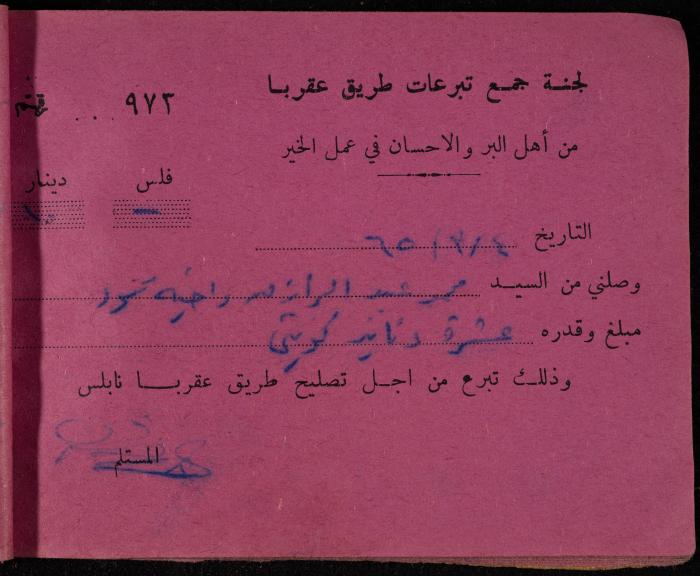 لجنة جمع تبرعات طريق عقربا
٩٧٢ ...
من أهل البر والاحسان في عمل الخير
فلس دينار
التاريخ ٦٥/٣/٤
وصلني من السيد عبد الرازق
مبلغ وقدره عشرة دنانير كويتي
وذلك تبرع من اجل تصليح طريق عقربا نابلس
المستلم